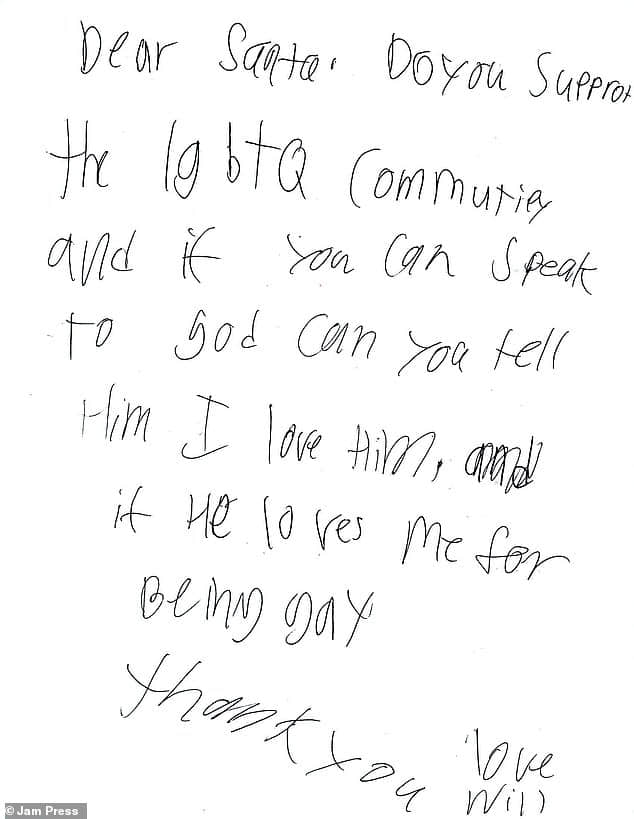 Dear Santa. Do you Supprot
the lgbtQ Commuties
and if you can Speak
to god can you tell
Him I love Him, and
if He loves me for
Being gay
thank you
love
Will
© Jam Press